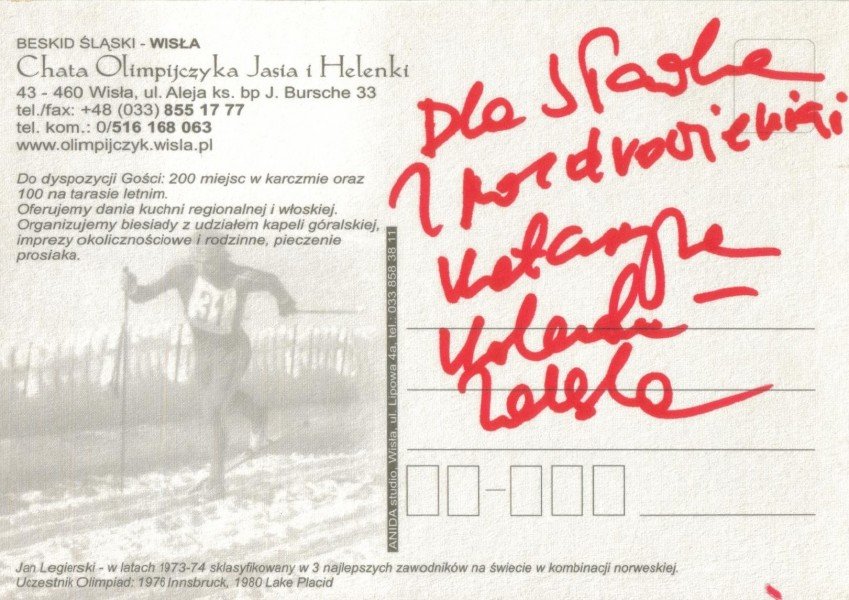 BESKID ŚLĄSKI - WISŁA
Chata Olimpijczyka Jasia i Helenki
43 - 460 Wisła, ul. Aleja ks. bp J. Bursche 33
tel./fax: +48 (033) 855 17 77
tel. kom.: 0/516 168 063
www.olimpijczyk.wisla.pl
Do dyspozycji Gości: 200 miejsc w karczmie oraz
100 na tarasie letnim.
Oferujemy dania kuchni regionalnej i włoskiej.
Organizujemy biesiady z udziałem kapeli góralskiej,
imprezy okolicznościowe i rodzinne, pieczenie
prosiaka.
31
ANIDA studio, Wisła, ul. Lipowa 4a, tel.: 033 858 38 11
Dla Sławka
z pozdrowieniami
Katarzyna
Kolenda -
Zaleska
Jan Legierski - w latach 1973-74 sklasyfikowany w 3 najlepszych zawodników na świecie w kombinacji norweskiej.
Uczestnik Olimpiad: 1976 Innsbruck, 1980 Lake Placid